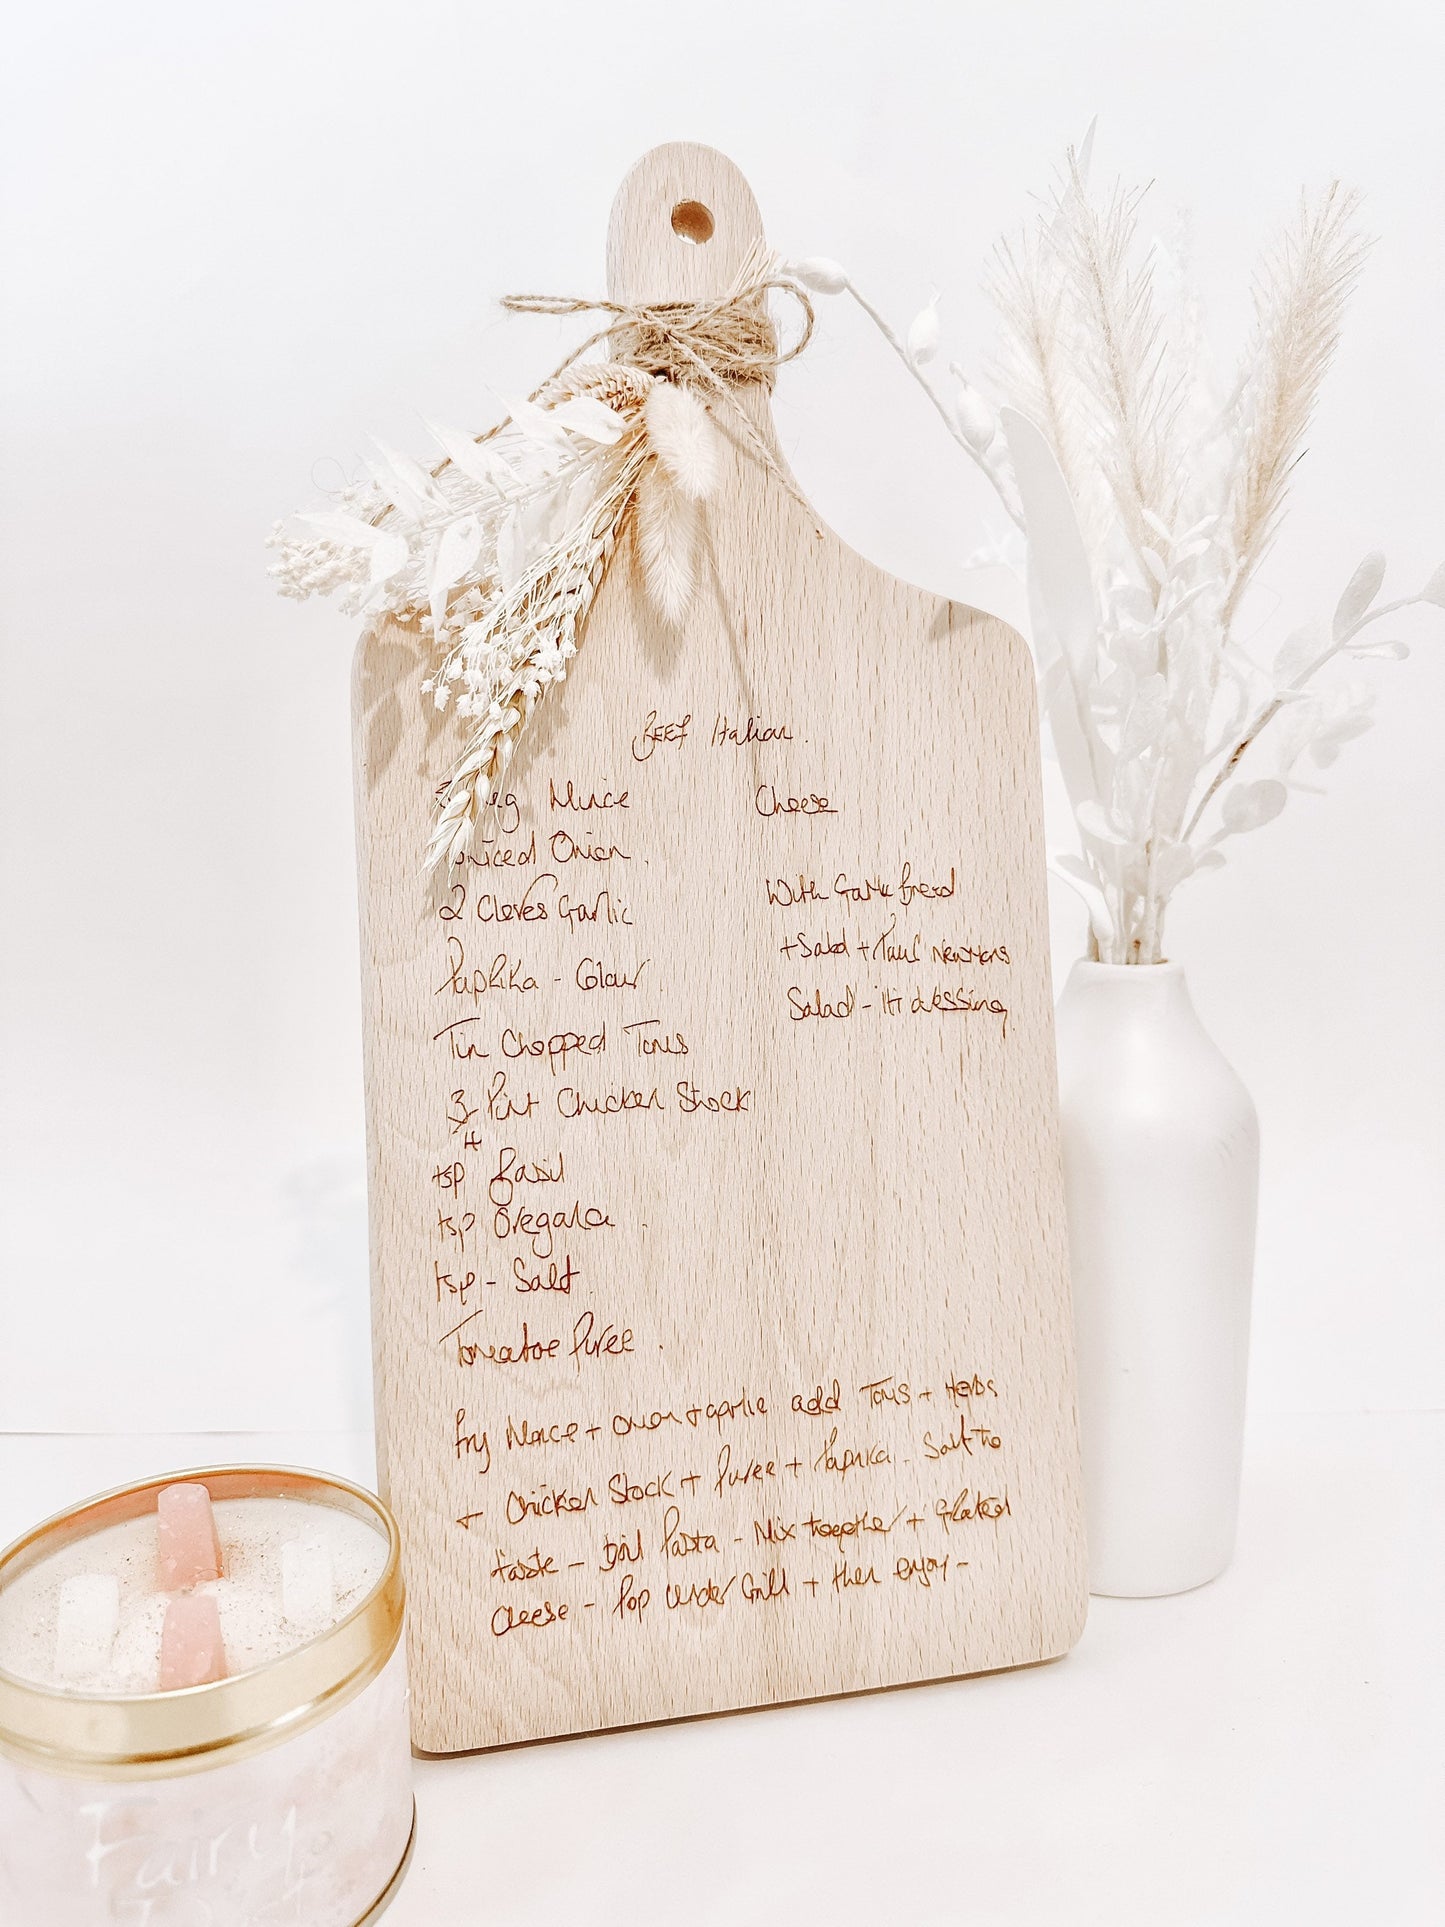 BEEF Italian.
Mince
Onion.
2 Cloves Garlic
Paprika - Colour.
Tin Chopped Toms
3/4 Pint Chicken Stock
tsp Basil
tsp Oregano.
tsp - Salt.
Tomatoe Puree.
Cheese
With Garlic Bread
+ Salad + Paul Newmans
Salad - It dressing.
Fry Mince + onion + garlic add Toms + Herbs
+ Chicken Stock + Puree + Paprika. Salt to
taste - Boil Pasta - Mix together + Grated
Cheese - Pop under Grill + then enjoy -
Fairy